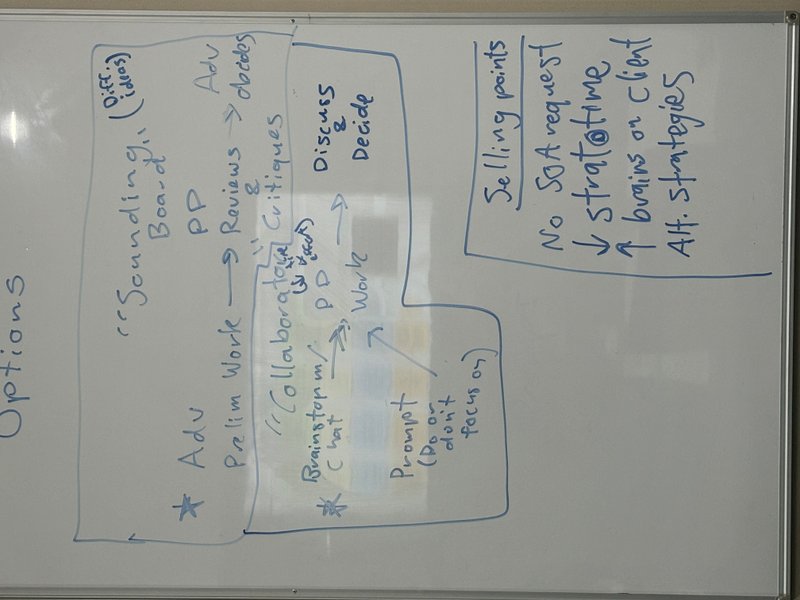 Options
"Sounding
Board"
(Diff.
ideas)
★ Adv
Prelim Work → PD
Reviews
&
Critiques → Adv
decides
"Collaborator"
★ Brainstorm /
Chat → PD
Work → Discuss
&
Decide
Prompt
(Do or
don't
focus on)
Selling points
No SOA request
↓ strat time
↑ brains on client
Alt. strategies